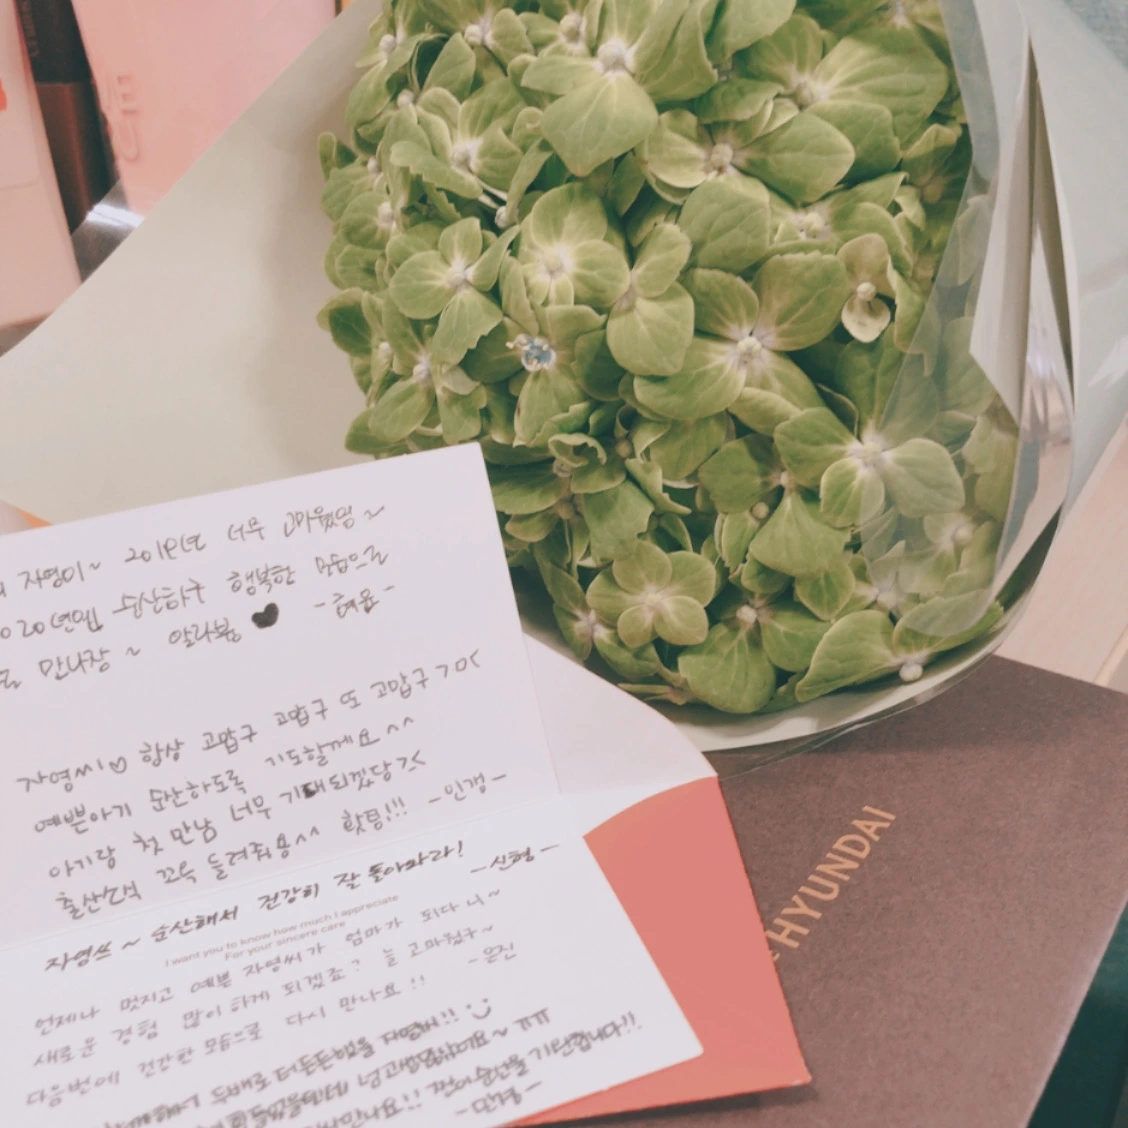 자영이~ 2019년 너무 고마웠엉~
2020년엔 순산하구 행복한 모습으로
만나장~ 알라븅 ♥
자영씨♡ 항상 고맙구 고맙구 또 고맙구
예쁜아기 순산하도록 기도할께요^^
아기랑 첫 만남 너무 기대되겠당
출산소식 꼬옥 들려줘용^^ 핫팅!!!
자영쓰~ 순산해서 건강히 잘 돌아와라!
I want you to know how much I appreciate
For your sincere care
언제나 멋지고 예쁜 자영씨가 엄마가 되다니~
새로운 경험 많이 하게 되겠죠? 늘 고마웠구~
다음번에 건강한 모습으로 다시 만나요!! -은진
HYUNDAI